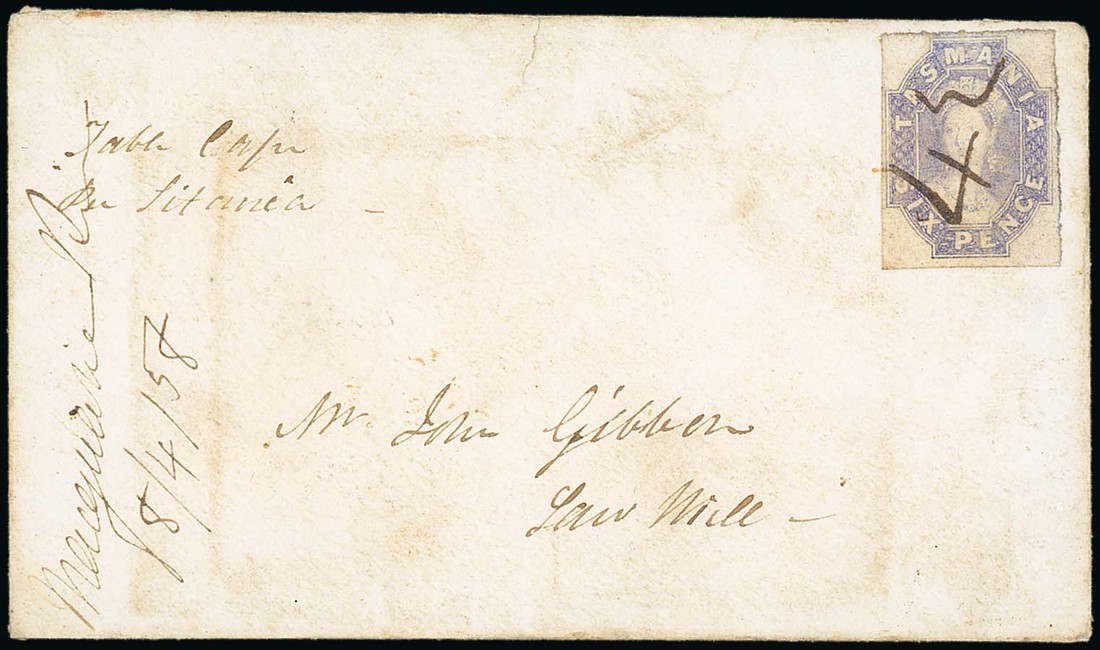 Table Cape
Per Titania –
Mr. John Gibbon
Saw Mill –
Macquarie Ri
18/4/58
TASMANIA
SIX PENCE